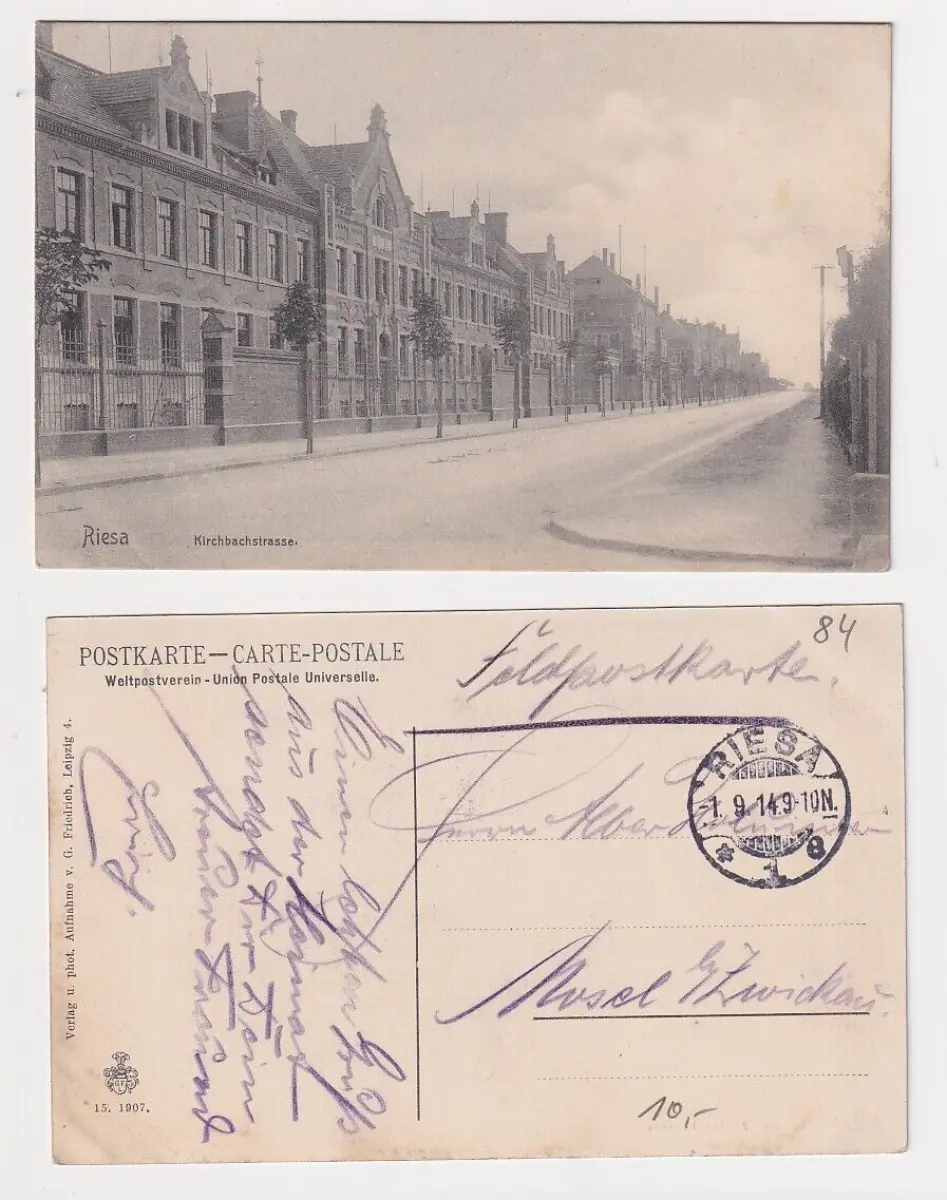 Riesa
Kirchbachstrasse.
84
POSTKARTE — CARTE-POSTALE
Weltpostverein - Union Postale Universelle.
Feldpostkarte.
Einen letzten Gruß
aus der Heimat
sendet Dir Dein
treuer Freund
Verlag u. phot. Aufnahme v. G. Friedrich, Leipzig 4.
RIESA
1. 9. 14. 9-10N.
* 1 a
Herrn
Mosel b/Zwickau.
15. 1907.
10,-